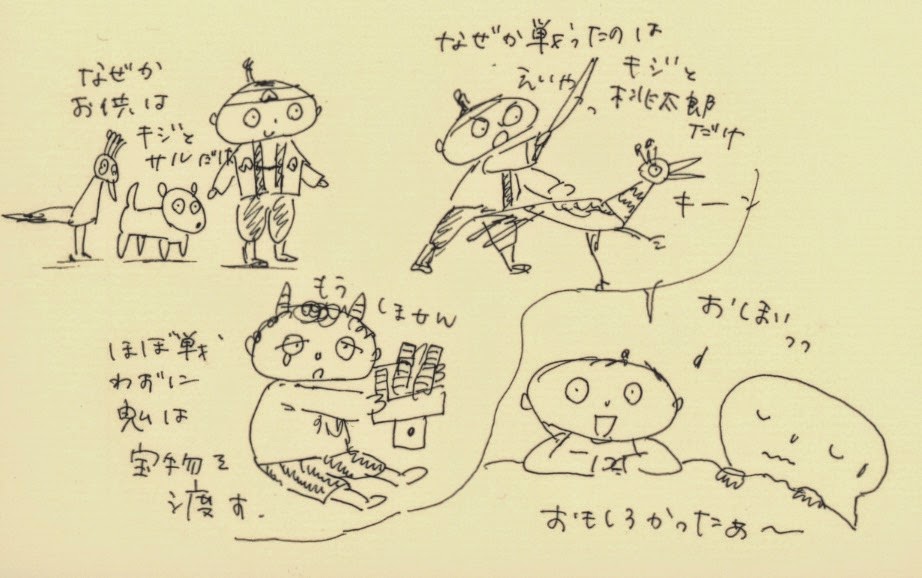 なぜか
お供は
キジと
サルだけ
なぜか戦ったのは
キジと
桃太郎
だけ
えいやっ
キーン
もう
しません
ほぼ戦
わずに
鬼は
宝物を
渡す.
おしまいっっ
おもしろかったあ〜